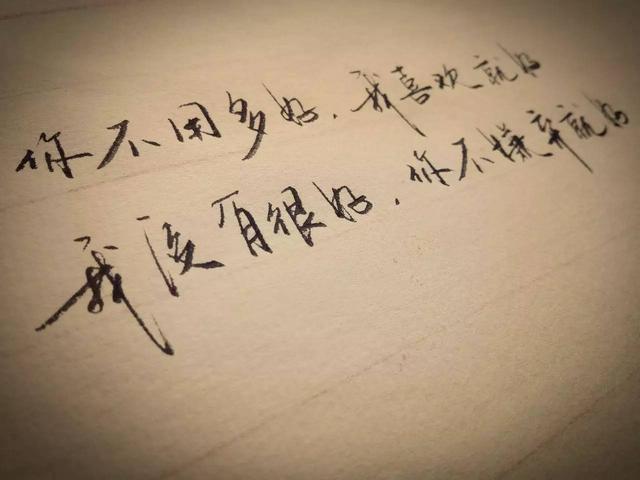 你不用多好，我喜欢就好
我没有很好，你不嫌弃就好